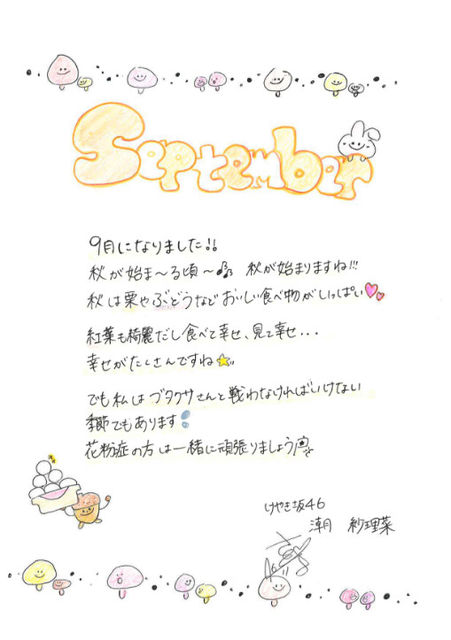 September
9月になりました!!
秋が始ま〜る頃〜 秋が始まりますね!!!
秋は栗やぶどうなどおいしい食べ物がいっぱい
紅葉も綺麗だし食べて幸せ、見て幸せ...
幸せがたくさんですね
でも私はブタクサさんと戦わなければいけない
季節でもあります
花粉症の方は一緒に頑張りましょう
けやき坂46
潮 紗理菜